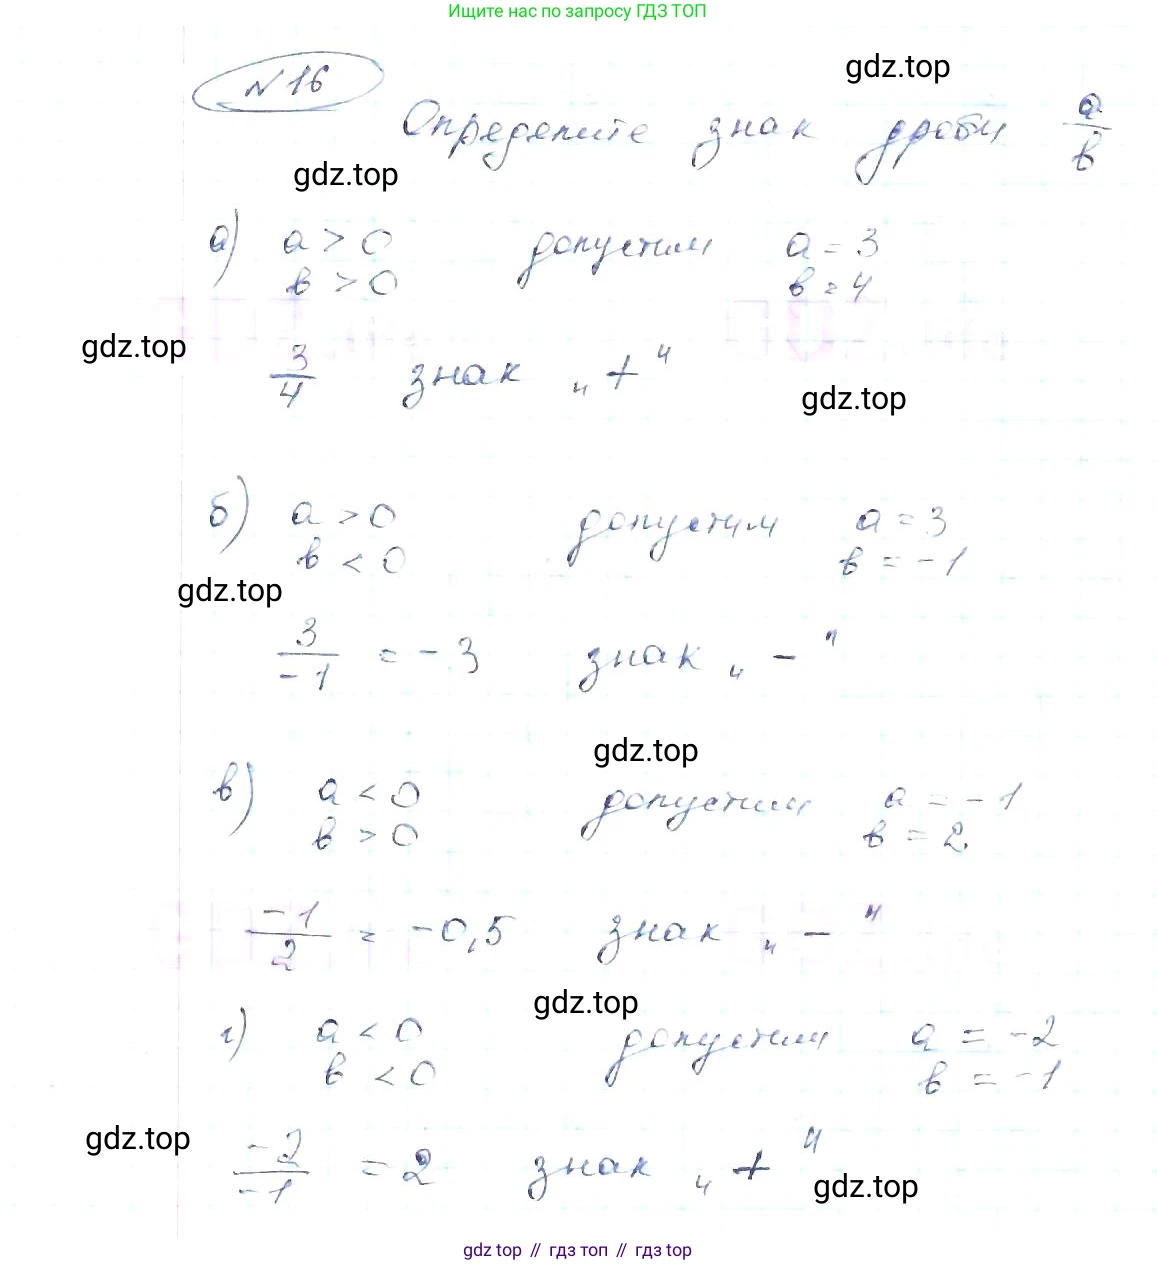 Ищите нас по запросу ГДЗ ТОП
№16
gdz.top
Определите знак дроби a/b
gdz.top
а) a > 0 допустим a = 3
b > 0 b = 4
gdz.top
3/4 знак „+“
gdz.top
б) a > 0 допустим a = 3
b < 0 b = -1
gdz.top
3/-1 = -3 знак „-“
gdz.top
в) a < 0 допустим a = -1
b > 0 b = 2
-1/2 = -0,5 знак „-“
gdz.top
г) a < 0 допустим a = -2
b < 0 b = -1
gdz.top
-2/-1 = 2 знак „+“
gdz.top
gdz top // гдз топ // gdz top